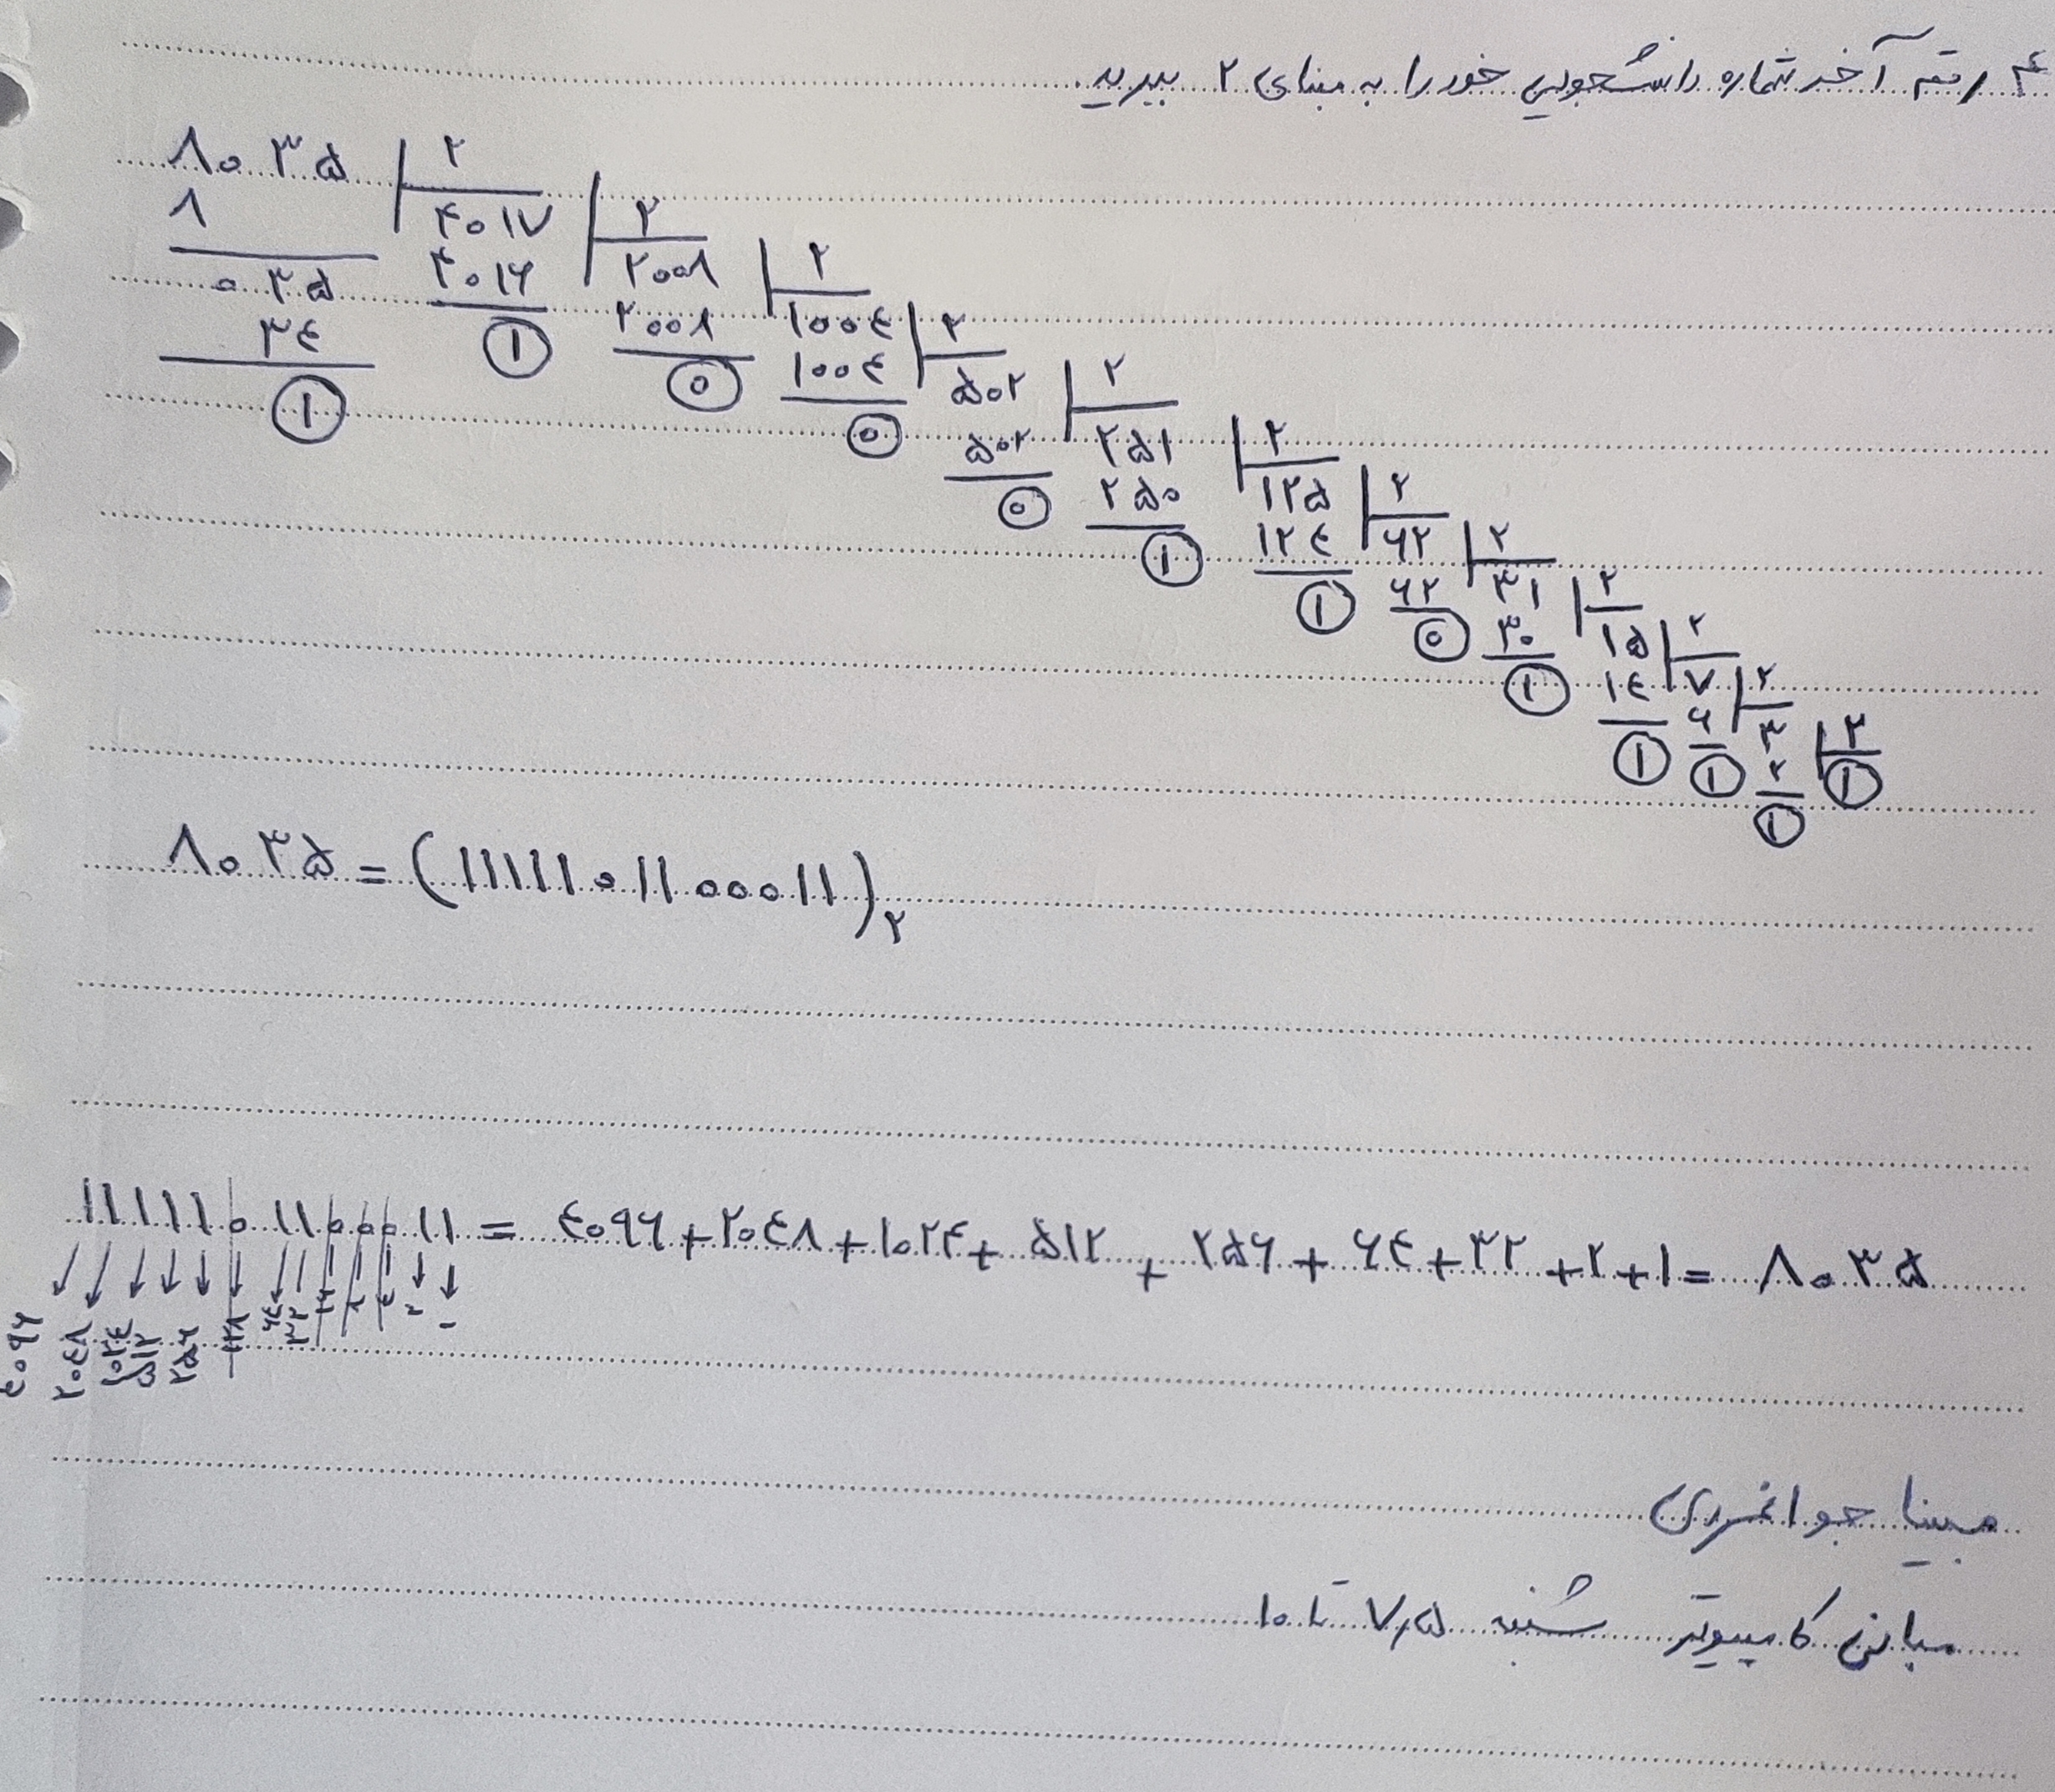 ۴ رقم آخر شماره دانشجویی خود را به مبنای ۲ ببرید.
۸۰۳۵ | ۲
۸ ۴۰۱۷ | ۲
۰۳۵ ۴۰۱۶ ۲۰۰۸ | ۲
۳۴ ۱ ۲۰۰۸ ۱۰۰۴ | ۲
۱ ۰ ۱۰۰۴ ۵۰۲ | ۲
۰ ۵۰۲ ۲۵۱ | ۲
۰ ۲۵۰ ۱۲۵ | ۲
۱ ۱۲۴ ۶۲ | ۲
۱ ۶۲ ۳۱ | ۲
۰ ۳۰ ۱۵ | ۲
۱ ۱۴ ۷ | ۲
۱ ۶ ۳ | ۲
۱ ۲ ۱
۱
۸۰۳۵ = (۱۱۱۱۱۰۱۱۰۰۰۱۱)۲
۱۱۱۱۱۰۱۱۰۰۰۱۱ = ۴۰۹۶ + ۲۰۴۸ + ۱۰۲۴ + ۵۱۲ + ۲۵۶ + ۶۴ + ۳۲ + ۲ + ۱ = ۸۰۳۵
۴۰۹۶ ۲۰۴۸ ۱۰۲۴ ۵۱۲ ۲۵۶ ۱۲۸ ۶۴ ۳۲ ۱۶ ۸ ۴ ۲ ۱
مبینا جوانمردی
مبانی کامپیوتر شنبه ۷٫۵ تا ۱۰